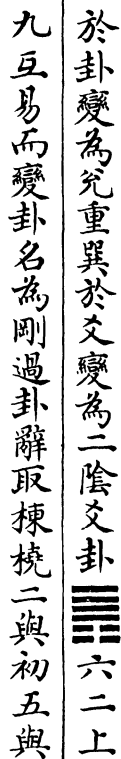 於卦變為兌重巽於爻變為二陰爻卦䷠六二上
九互易而變卦名為剛過卦辭取棟橈二與初五與